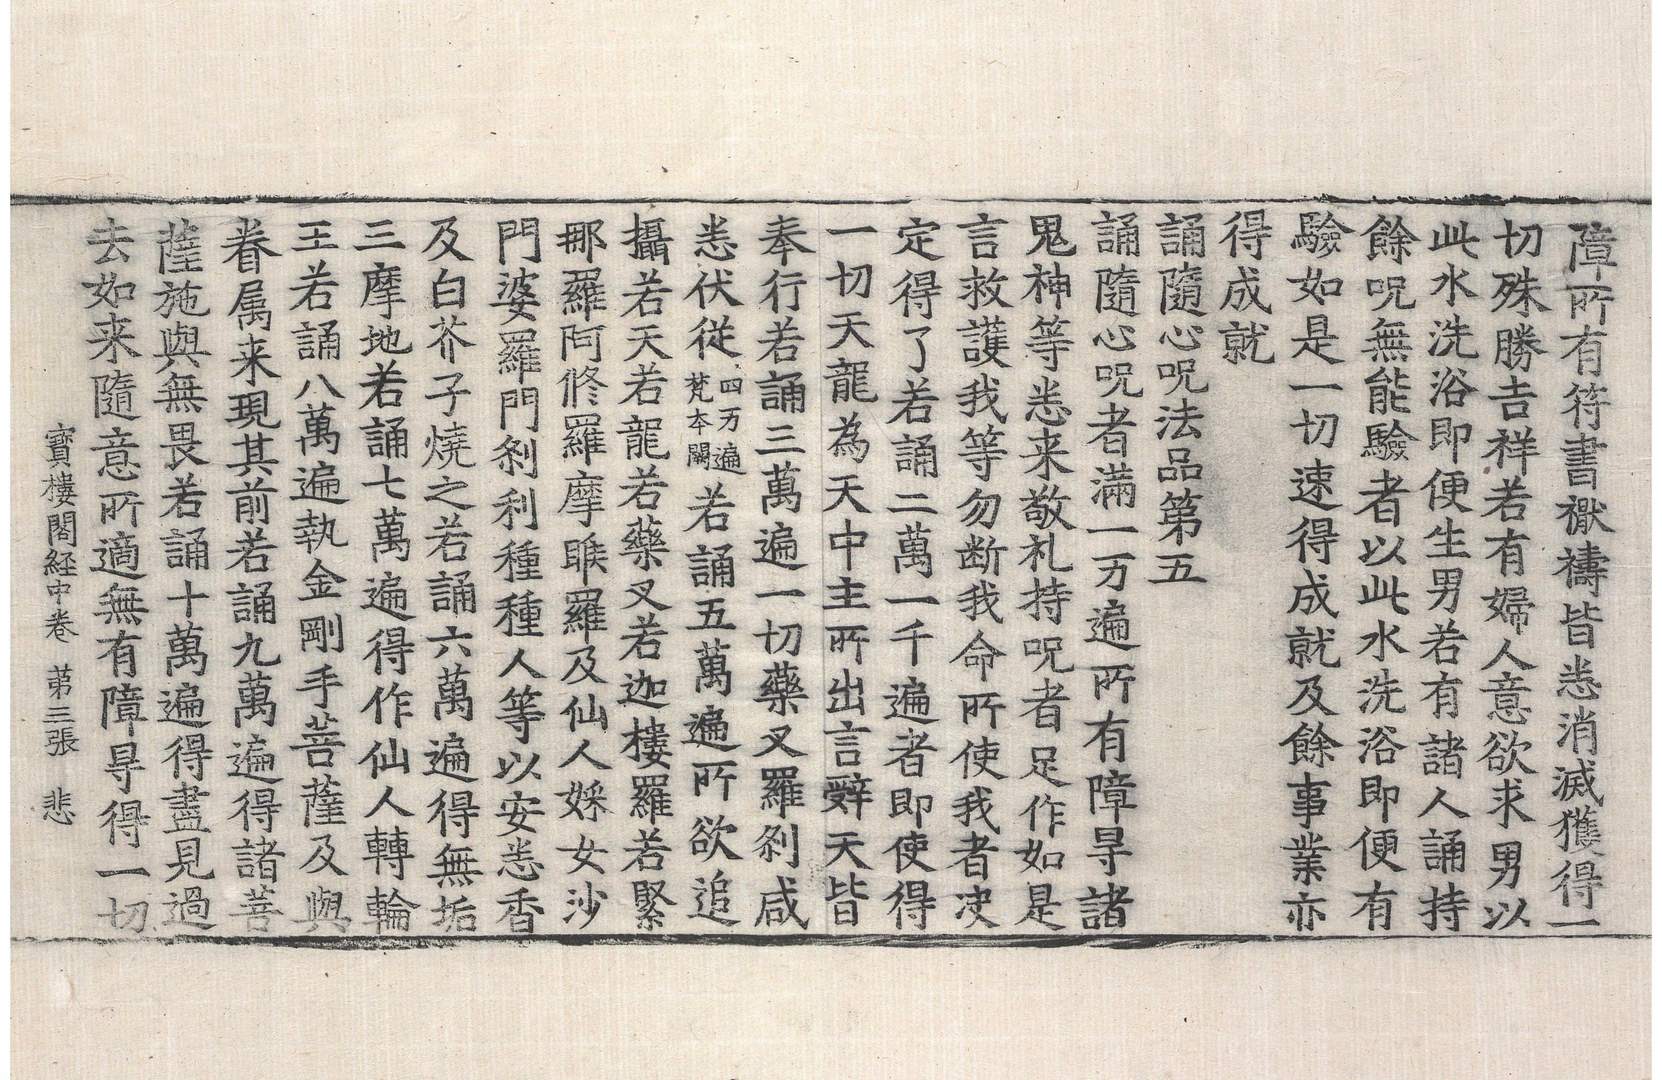 障所有符書禩禱皆悉消滅獲得一
切殊勝吉祥若有婦人意欲求男以
此水洗浴即便生男若有諸人誦持
餘呪無能驗者以此水洗浴即便有
驗如是一切速得成就及餘事業亦
得成就
誦隨心呪法品第五
誦隨心呪者滿一万遍所有障㝵諸
鬼神等悉来敬礼持呪者足作如是
言救護我等勿断我命所使我者决
定得了若誦二萬一千遍者即使得
一切天龍為天中主所出言辭天皆
奉行若誦三萬遍一切藥叉羅剎咸
悉伏從四万遍梵本闕若誦五萬遍所欲追
攝若天若龍若藥叉若迦樓羅若緊
那羅阿修羅摩睺羅及仙人婇女沙
門婆羅門剎利種種人等以安悉香
及白芥子燒之若誦六萬遍得無垢
三摩地若誦七萬遍得作仙人轉輪
王若誦八萬遍執金剛手菩薩及與
眷属来現其前若誦九萬遍得諸菩
薩施與無畏若誦十萬遍得盡見過
去如来隨意所適無有障㝵得一切
寳樓閣経中卷 苐三張 悲